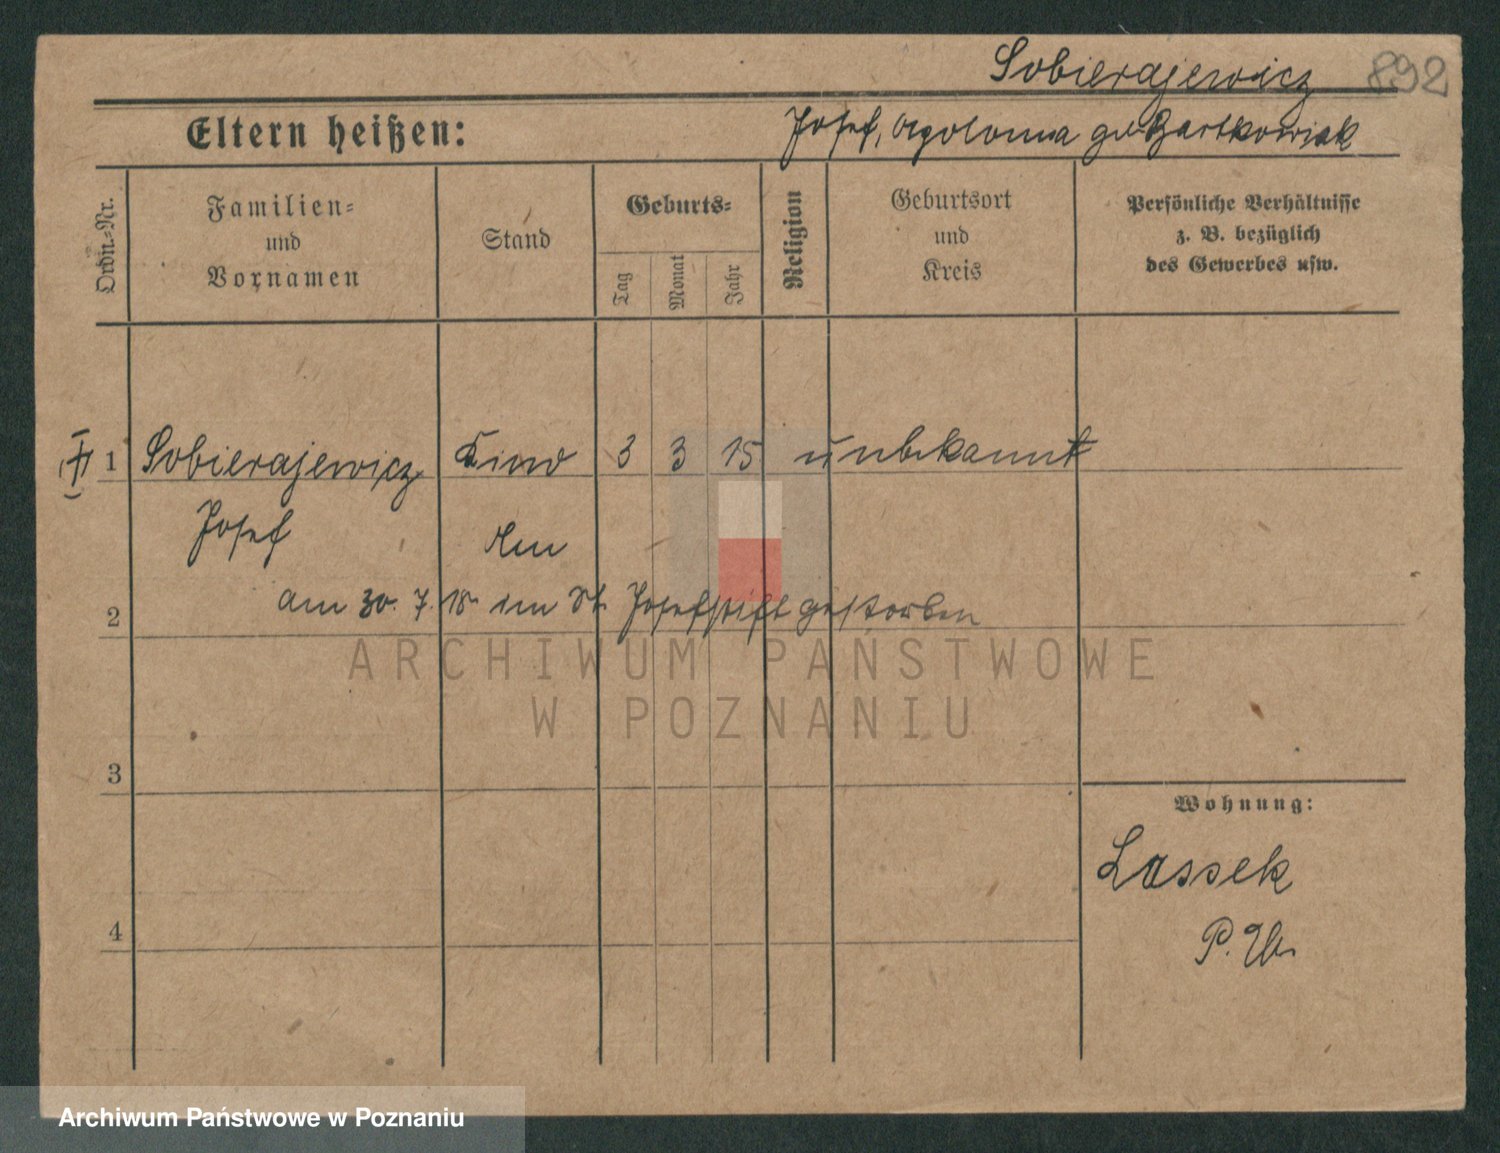 Sobierajewicz 892
Eltern heißen: Josef, Apolonia geb. Bartkowiak
Ordn.=Nr.
Familien=
und
Vornamen
Stand
Geburts=
Tag
Monat
Jahr
Religion
Geburtsort
und
Kreis
Persönliche Verhältnisse
z. B. bezüglich
des Gewerbes usw.
1 Sobierajewicz Kind 3 3 15 unbekannt
Josef
am 30. 7. 18 im St. Josefstift gestorben
2
ARCHIWUM PAŃSTWOWE
W POZNANIU
3
Wohnung:
Lassek
4
Archiwum Państwowe w Poznaniu